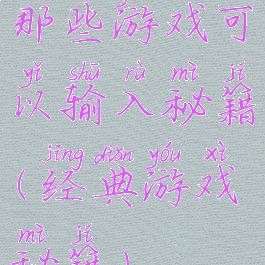 那些游戏可
yǐ shū rù mì jí
以输入秘籍
jīng diǎn yóu xì
(经典游戏
mì jí
秘籍)